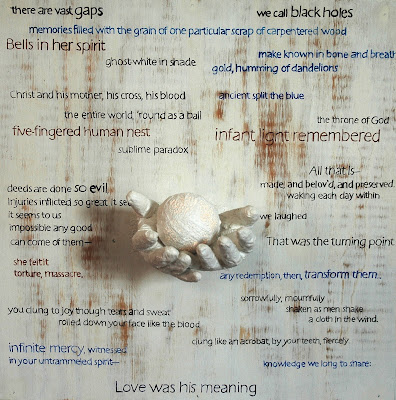 there are vast gaps
we call black holes
memories filled with the grain of one particular scrap of carpentered wood
Bells in her spirit
make known in bone and breath
ghost white in shade
gold, humming of dandelions
Christ and his mother, his cross, his blood
ancient split the blue
the entire world, 'round as a ball
the throne of God
five-fingered human nest
infant light remembered
sublime paradox
All that is—
deeds are done so evil
made, and belov'd, and preserved
injuries inflicted so great, it
waking each day within
it seems to us
we laughed
impossible any good
can come of them—
That was the turning point
she felt it
torture, massacre,
any redemption, then, transform them.
sorrowfully, mournfully
you clung to joy though tears and sweat
shaken as men shake
rolled down your face like the blood
a cloth in the wind.
clung like an acrobat, by your teeth, fiercely
infinite mercy, witnessed
in your untrammeled spirit—
knowledge we long to share:
Love was his meaning